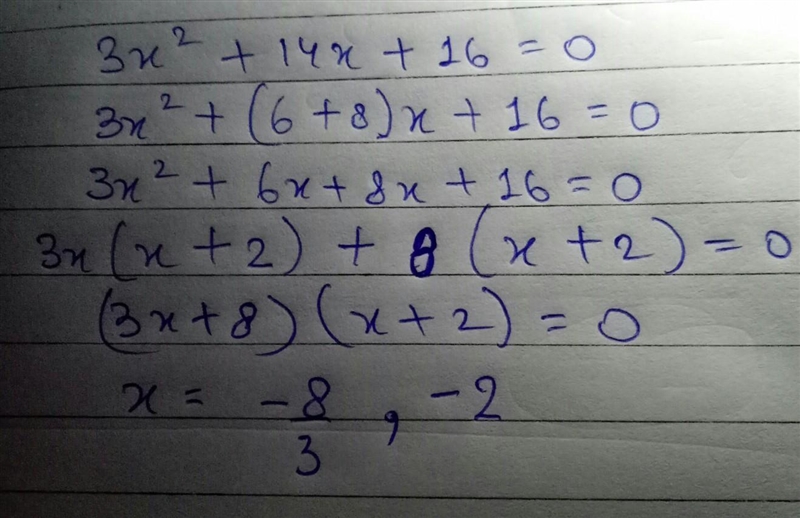 3x² + 14x + 16 = 0
3x² + (6 + 8)x + 16 = 0
3x² + 6x + 8x + 16 = 0
3x(x + 2) + 8(x + 2) = 0
(3x + 8)(x + 2) = 0
x = -8/3, -2